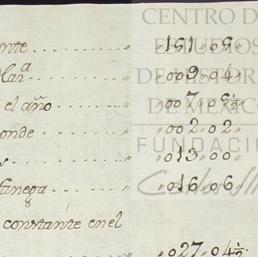 nte . . . . . . . . . . " 191 " 09 "
Mar.ª . . . . . . . . " 009 " 04 "
el año . . . . . . . " 007 " 06 ½ "
onde . . . . . . . . " 002 " 02 "
s . . . . . . . . . . " 013 " 00 "
fanega . . . . . . . " 016 " 06 "
constante en el
. . . . . . . . . . . " 027 " 04 ½ "
CENTRO D
ESTUDIOS
DE HISTOR
DE MÉXICO
FUNDACIÓ
Carlos Sl